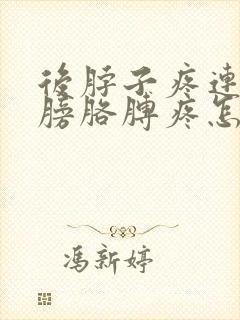 後脖子疼連
膀胳膊疼怎
馮新婷